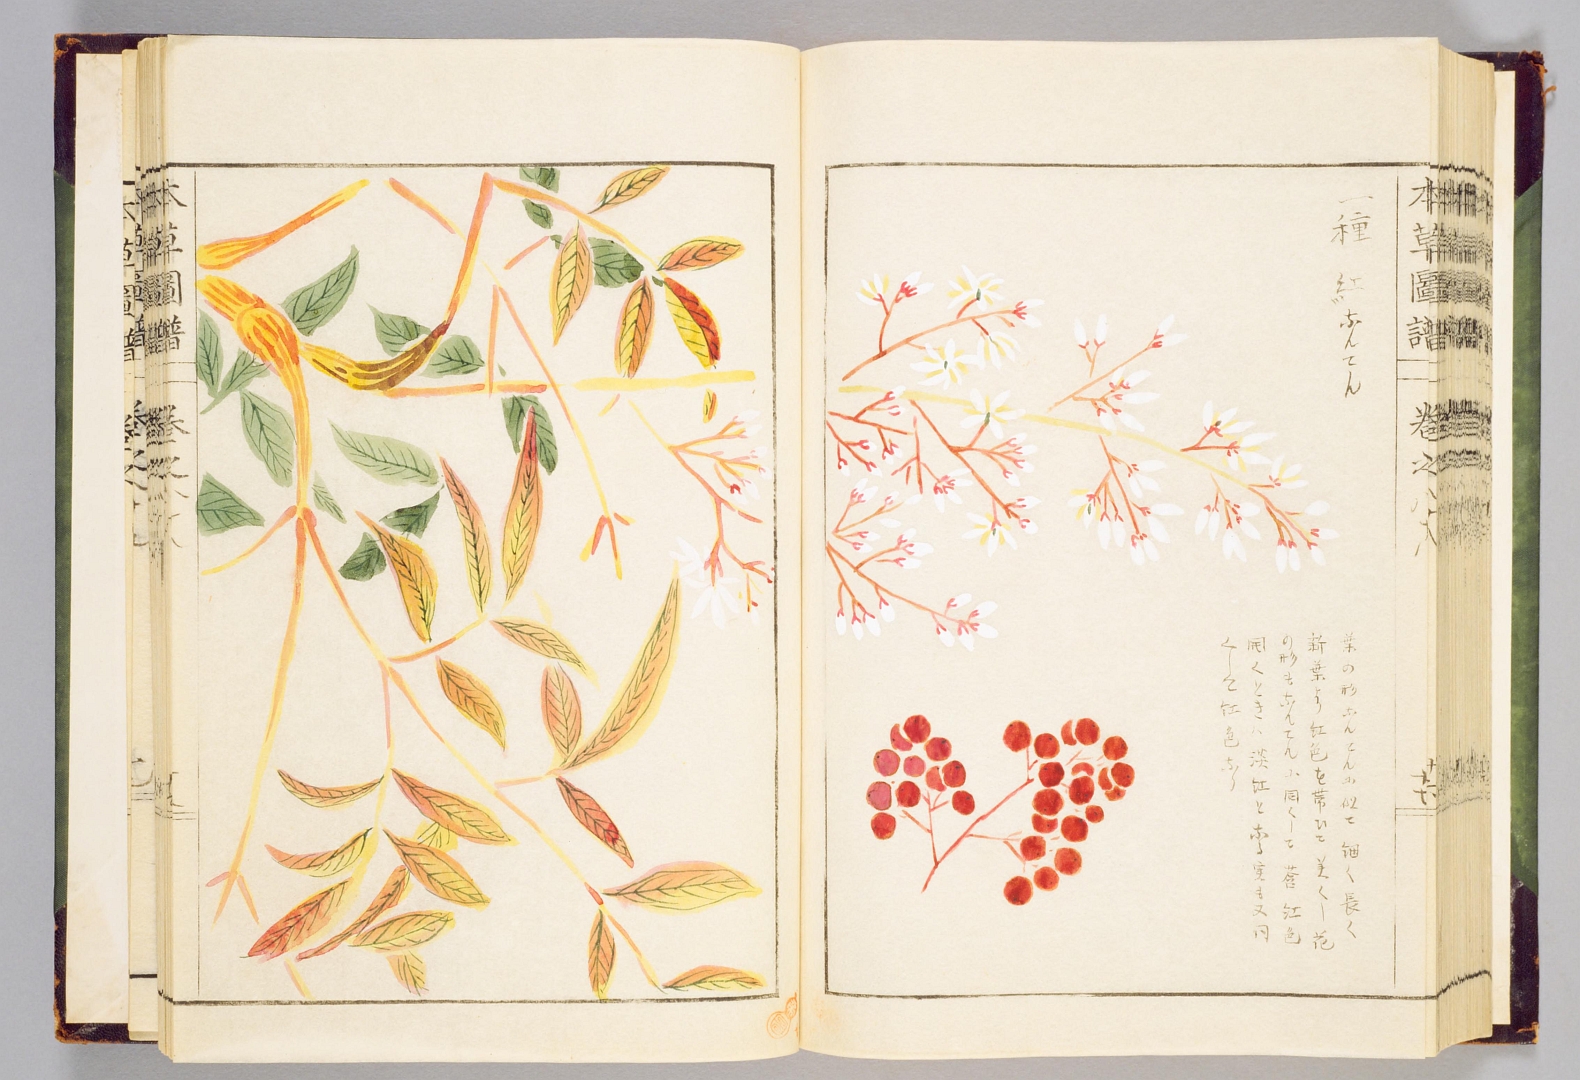 本草圖譜 卷之八
一種 紅なんてん
葉の形なんてんに似て細く長く
新葉より紅色を帯ひて美くし花
の形もなんてんに同くして蕾紅色
開くときハ淡紅となる実も又同
くして紅色なり
本草圖譜